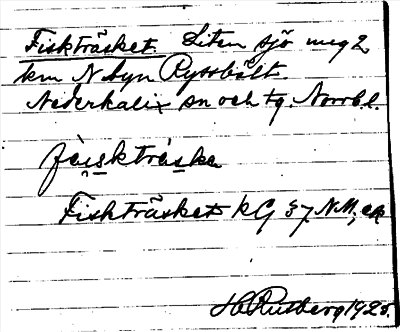 Fiskträsket. Liten sjö
km N. byn Ryssbält.
Nederkalix sn och tg. Norrb. l.
fèiskträske
Fiskträsket kG 37 N.M.
H. Rutberg 1925.